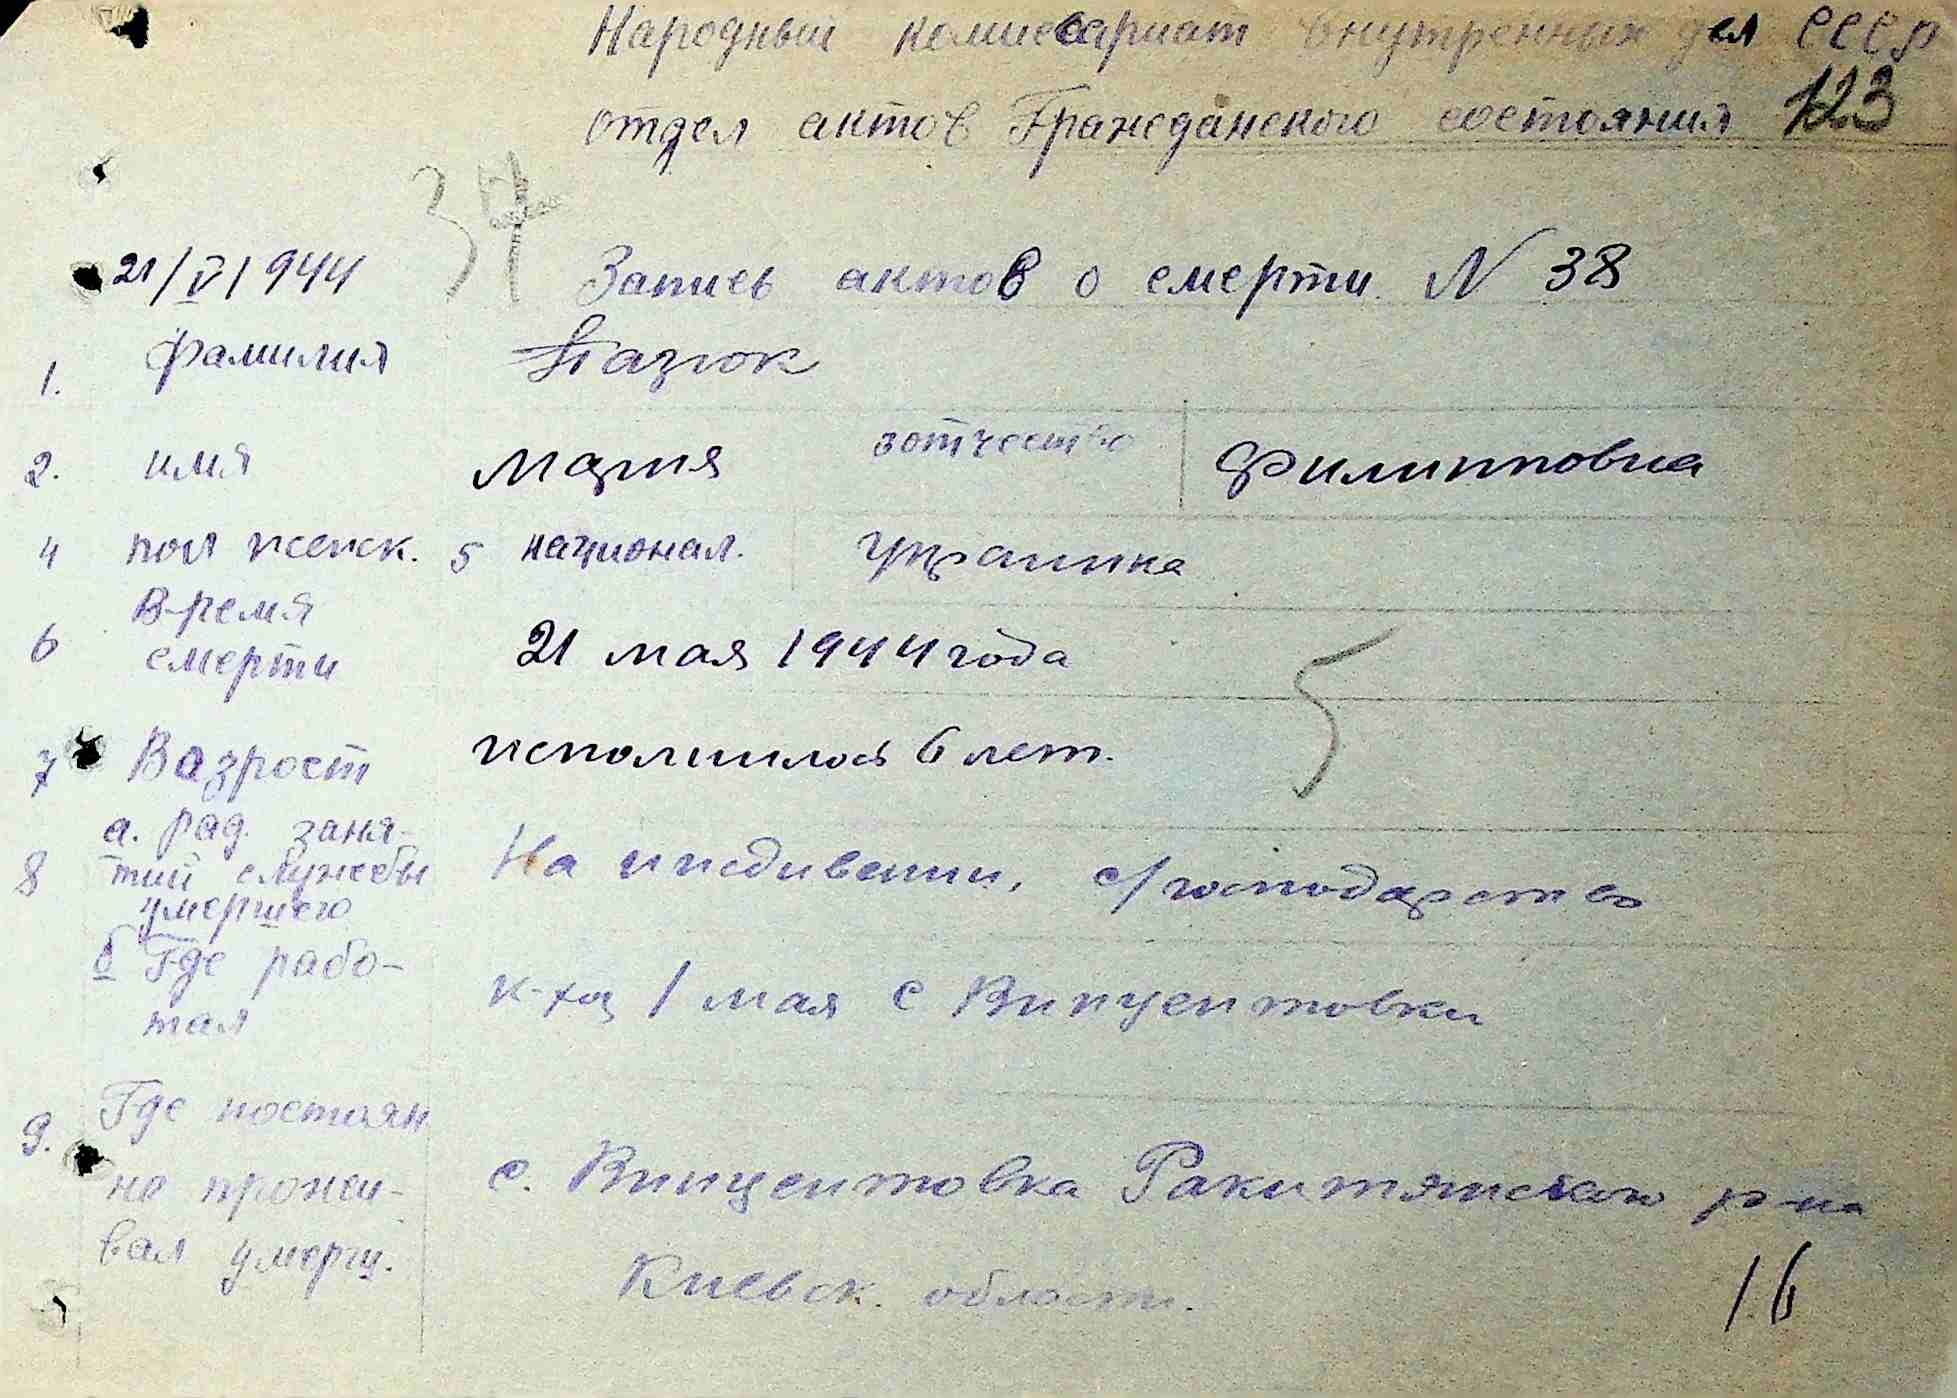 Народный комиссариат внутренних дел СССР
отдел актов Гражданского состояния 123
37
21/V 1944 Запись актов о смерти N 38
1. фамилия Пазюк
2. имя Мария 3 отчество Филипповна
4 пол женск. 5 национал. Украинка
6 Время смерти 21 мая 1944 года
7 Возрост исполнилось 6 лет.
5
8 а. рад. заня-
тий службы
умершего На иждивении, с/господарство
б Где рабо-
тал к-хоз 1 мая с Винцентовки
9. Где постоян
но прожи-
вал умерш. с. Винцентовка Ракитянского р-на
Киевск. области.
16